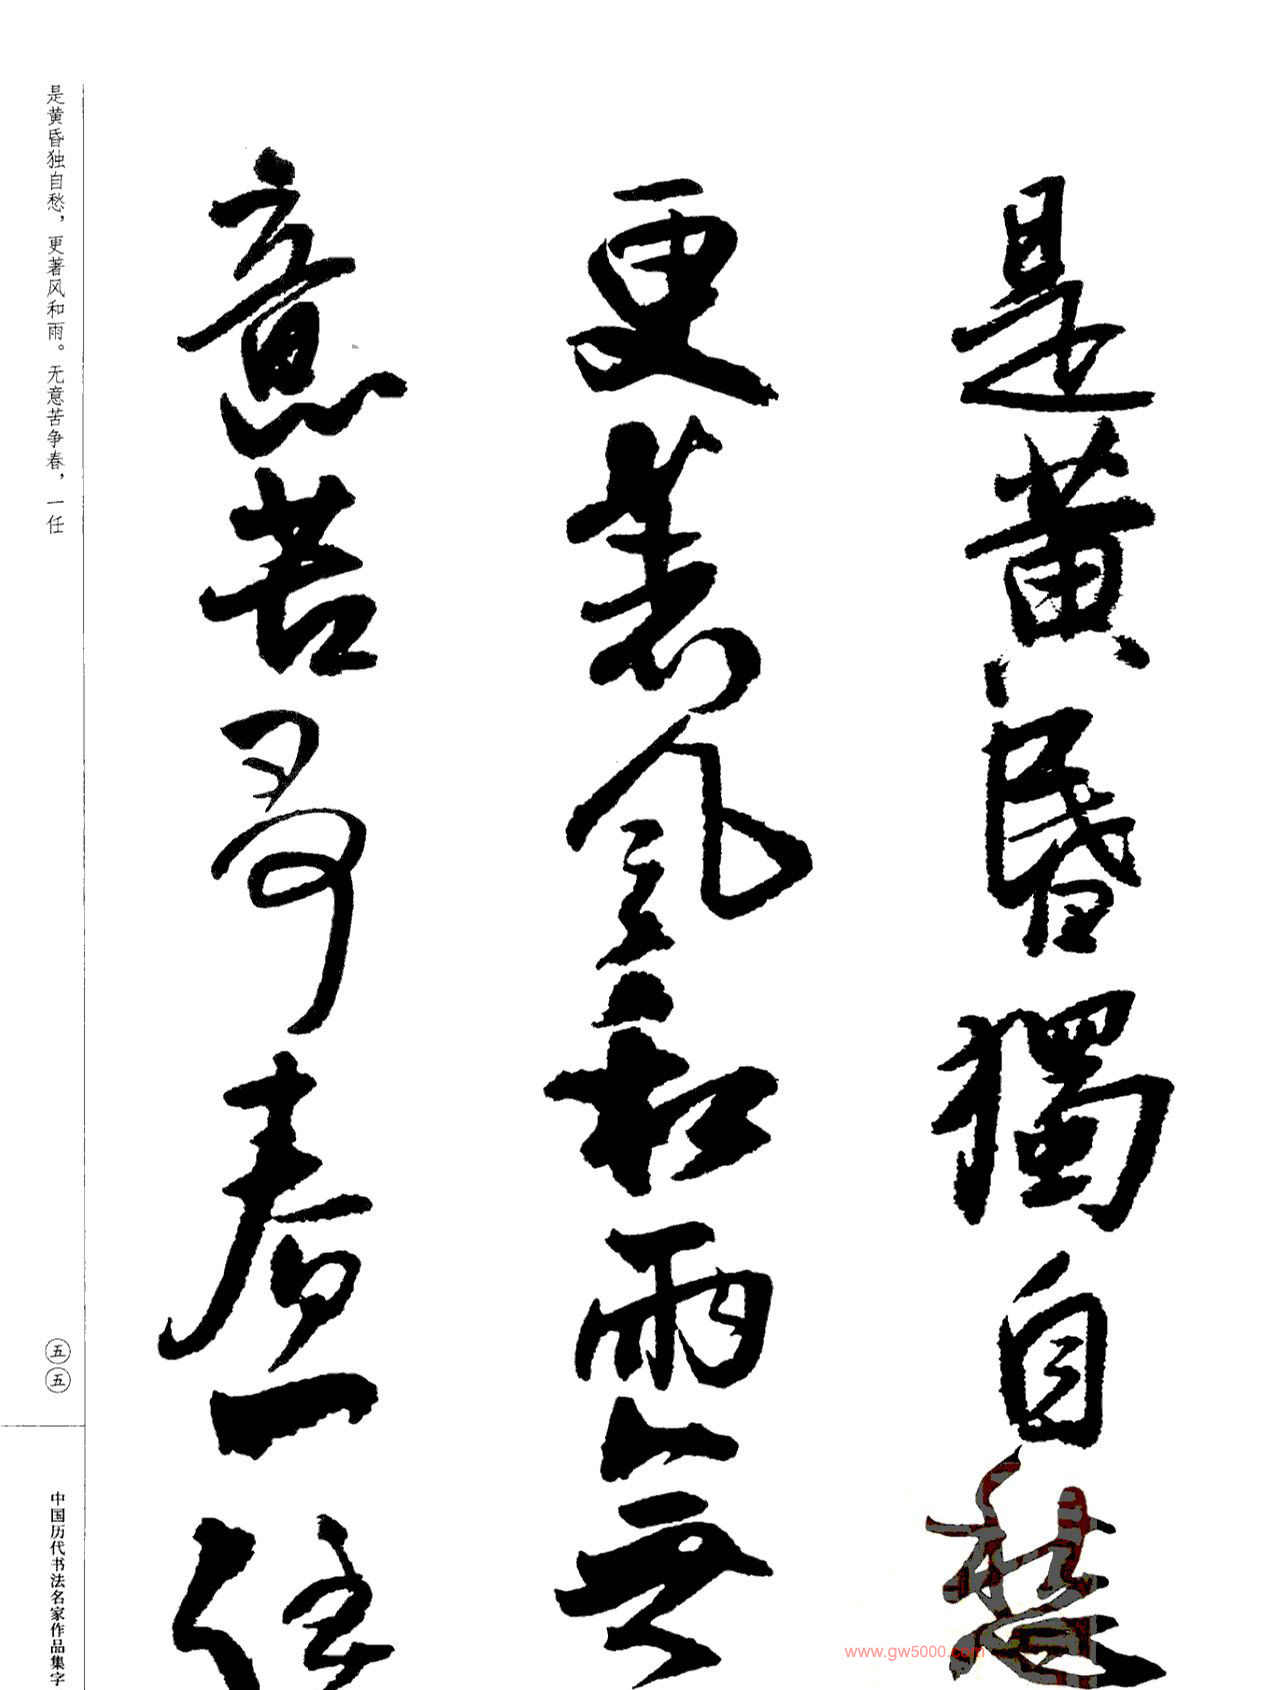 是黄昏獨自愁
更著風和雨無
意苦爭春一任
是黄昏独自愁，更著风和雨。无意苦争春，一任
五五
中国历代书法名家作品集字
www.gw5000.com